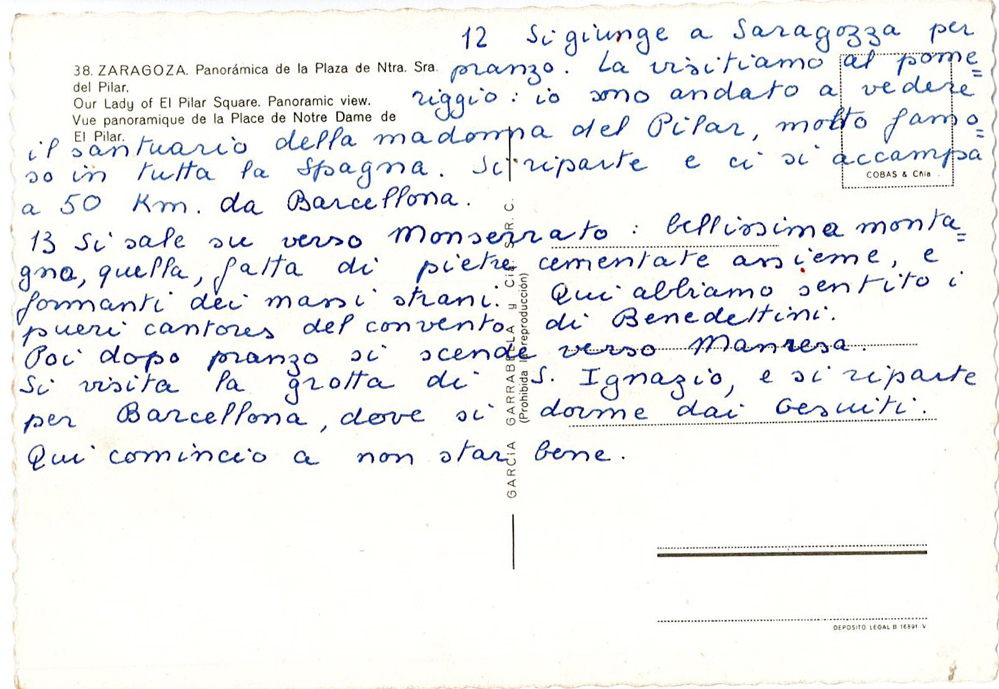 12 Si giunge a Saragozza per
38. ZARAGOZA. Panorámica de la Plaza de Ntra. Sra.
del Pilar.
Our Lady of El Pilar Square. Panoramic view.
Vue panoramique de la Place de Notre Dame de
El Pilar.
pranzo. La visitiamo al pome=
riggio: io sono andato a vedere
il santuario della madonna del Pilar, molto famo-
so in tutta la Spagna. Si riparte e ci si accampa
COBAS & Cnia
a 50 Km. da Barcellona.
13 Si sale su verso Monserrato: bellissima monta=
gna, quella, fatta di pietre cementate assieme, e
formanti dei massi strani. Qui abbiamo sentito i
pueri cantores del convento di Benedettini.
Poi dopo pranzo si scende verso Manresa.
Si visita la grotta di S. Ignazio, e si riparte
per Barcellona, dove si dorme dai Gesuiti.
Qui comincio a non star bene.
GARCIA GARRABELLA y Cía. S. R. C.
(Prohibida la reproducción)
DEPOSITO LEGAL B 16891-V